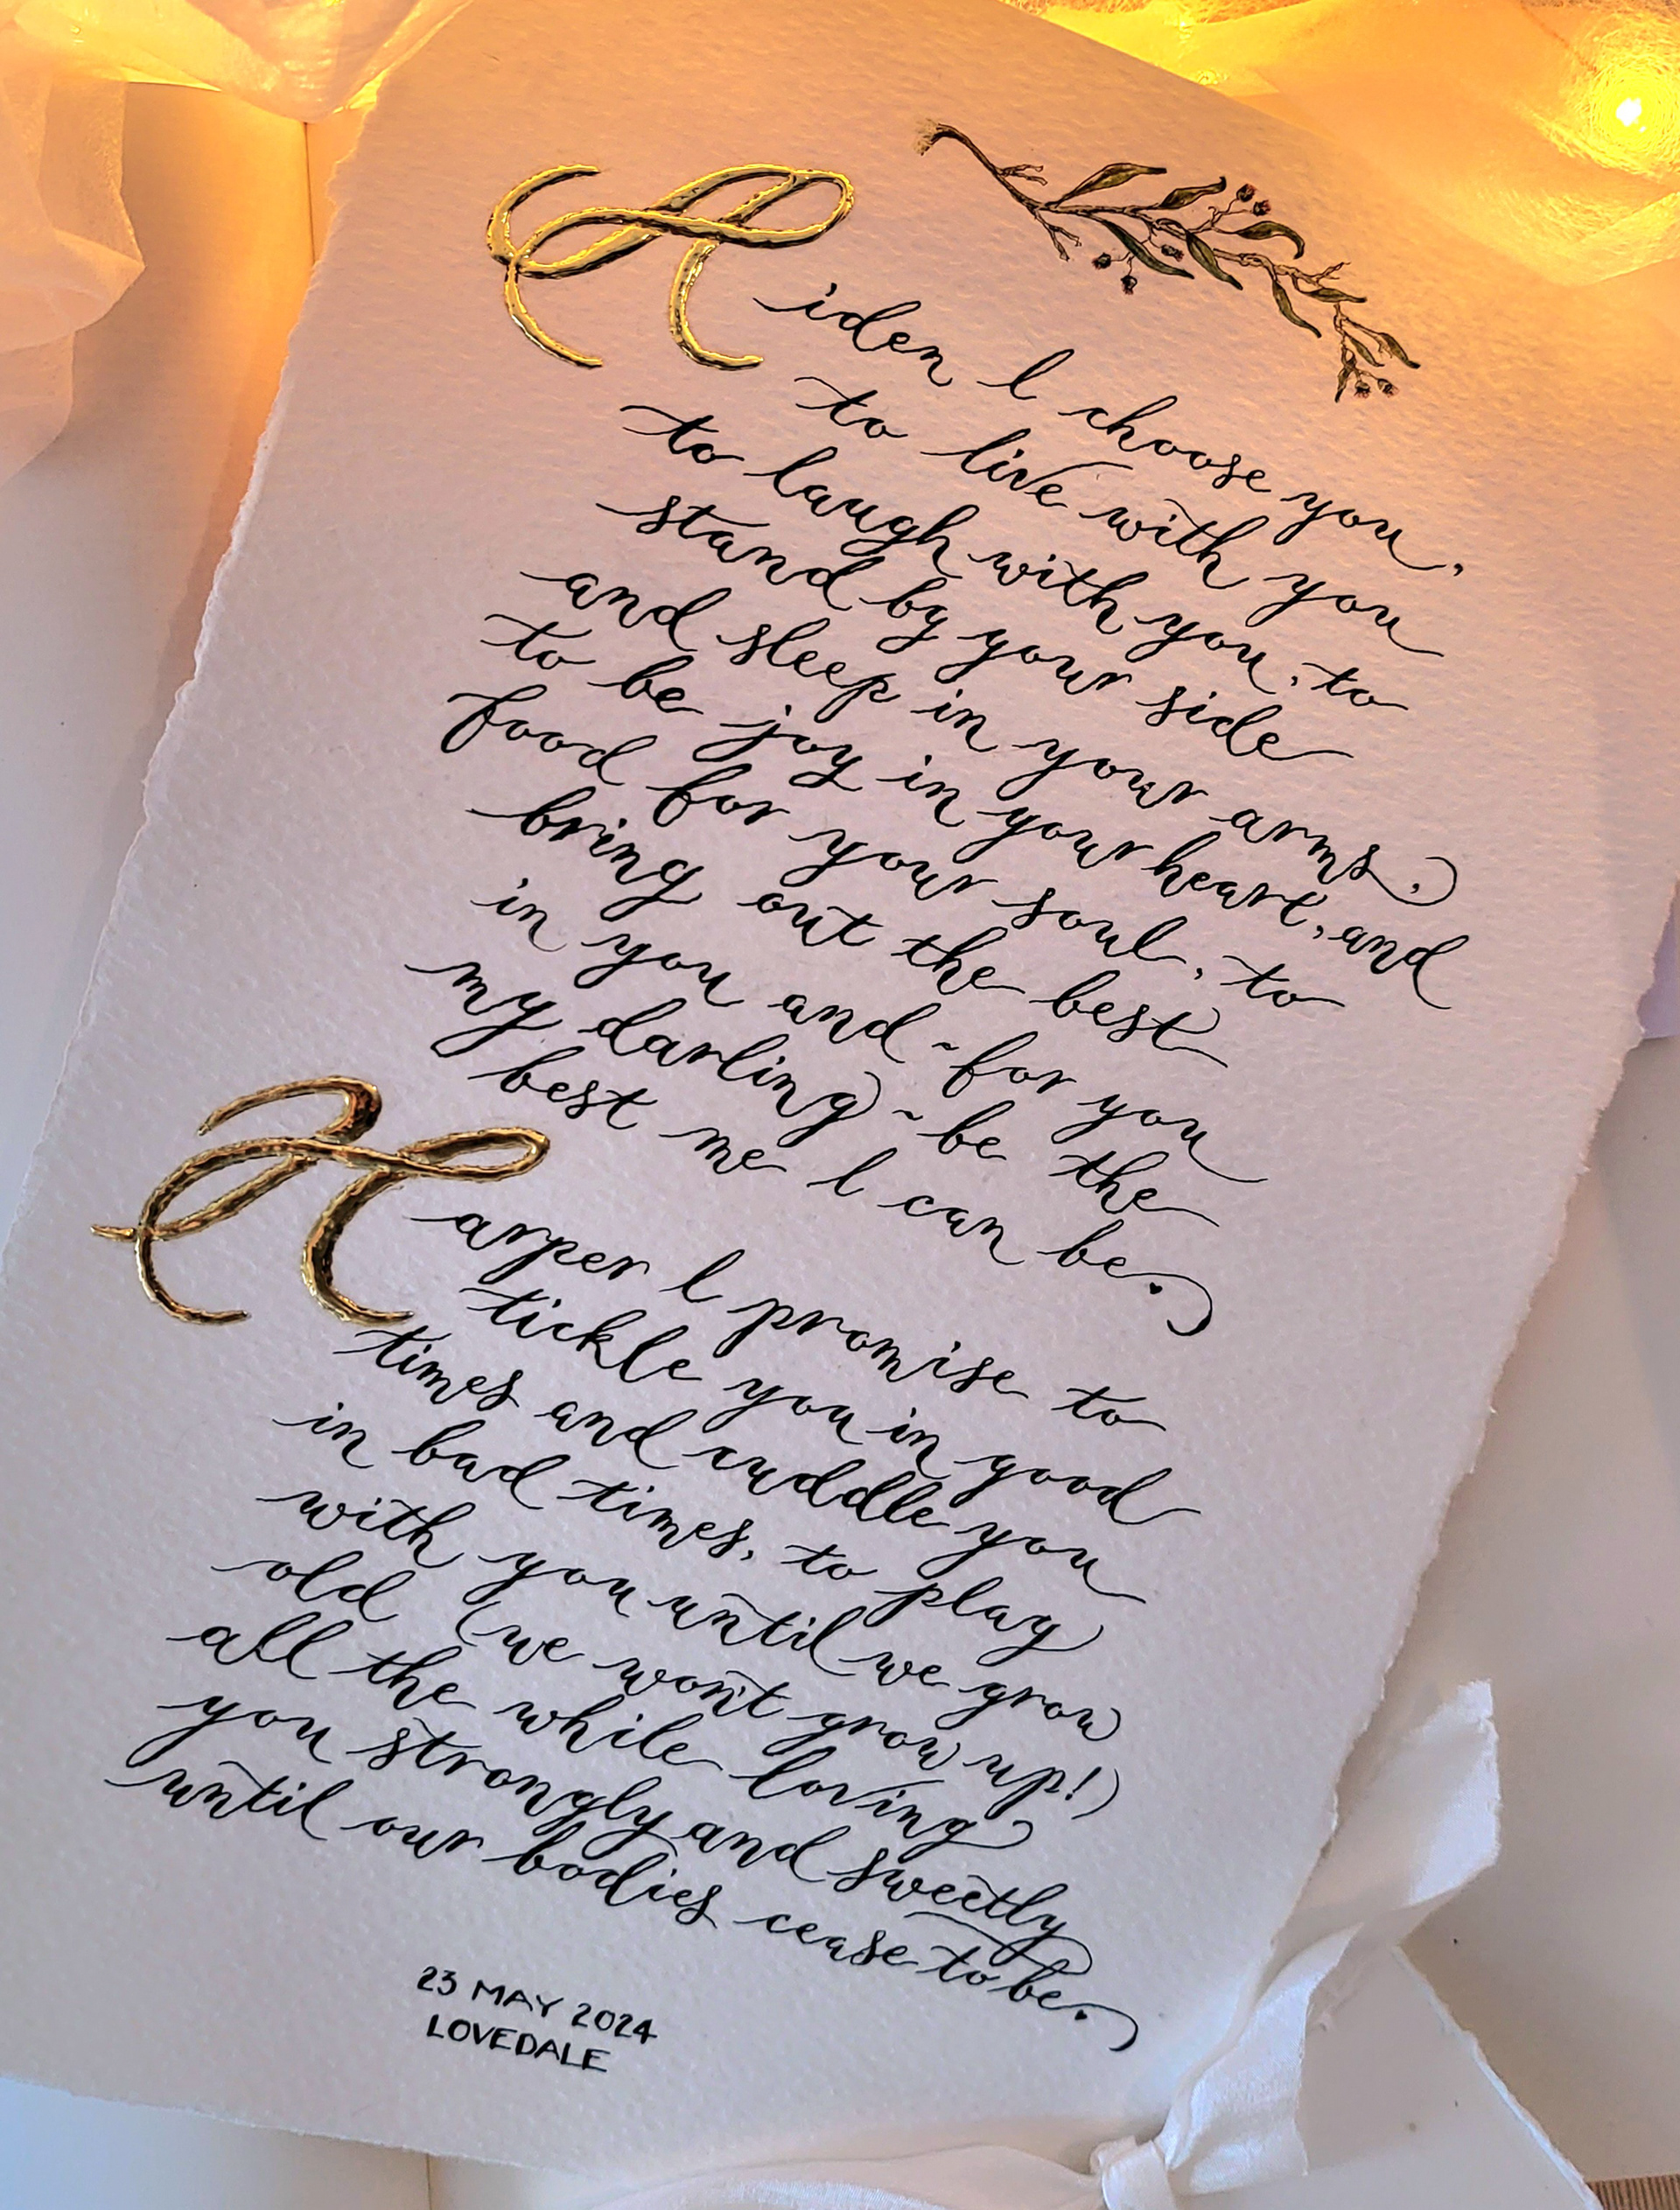 Aiden I choose you,
to live with you
to laugh with you, to
stand by your side
and sleep in your arms,
to be joy in your heart, and
food for your soul, to
bring out the best
in you and ~ for you
my darling ~ be the
best me I can be.
Harper I promise to
tickle you in good
times and cuddle you
in bad times, to play
with you until we grow
old (we won't grow up!)
all the while loving
you strongly and sweetly
until our bodies cease to be.
23 MAY 2024
LOVEDALE